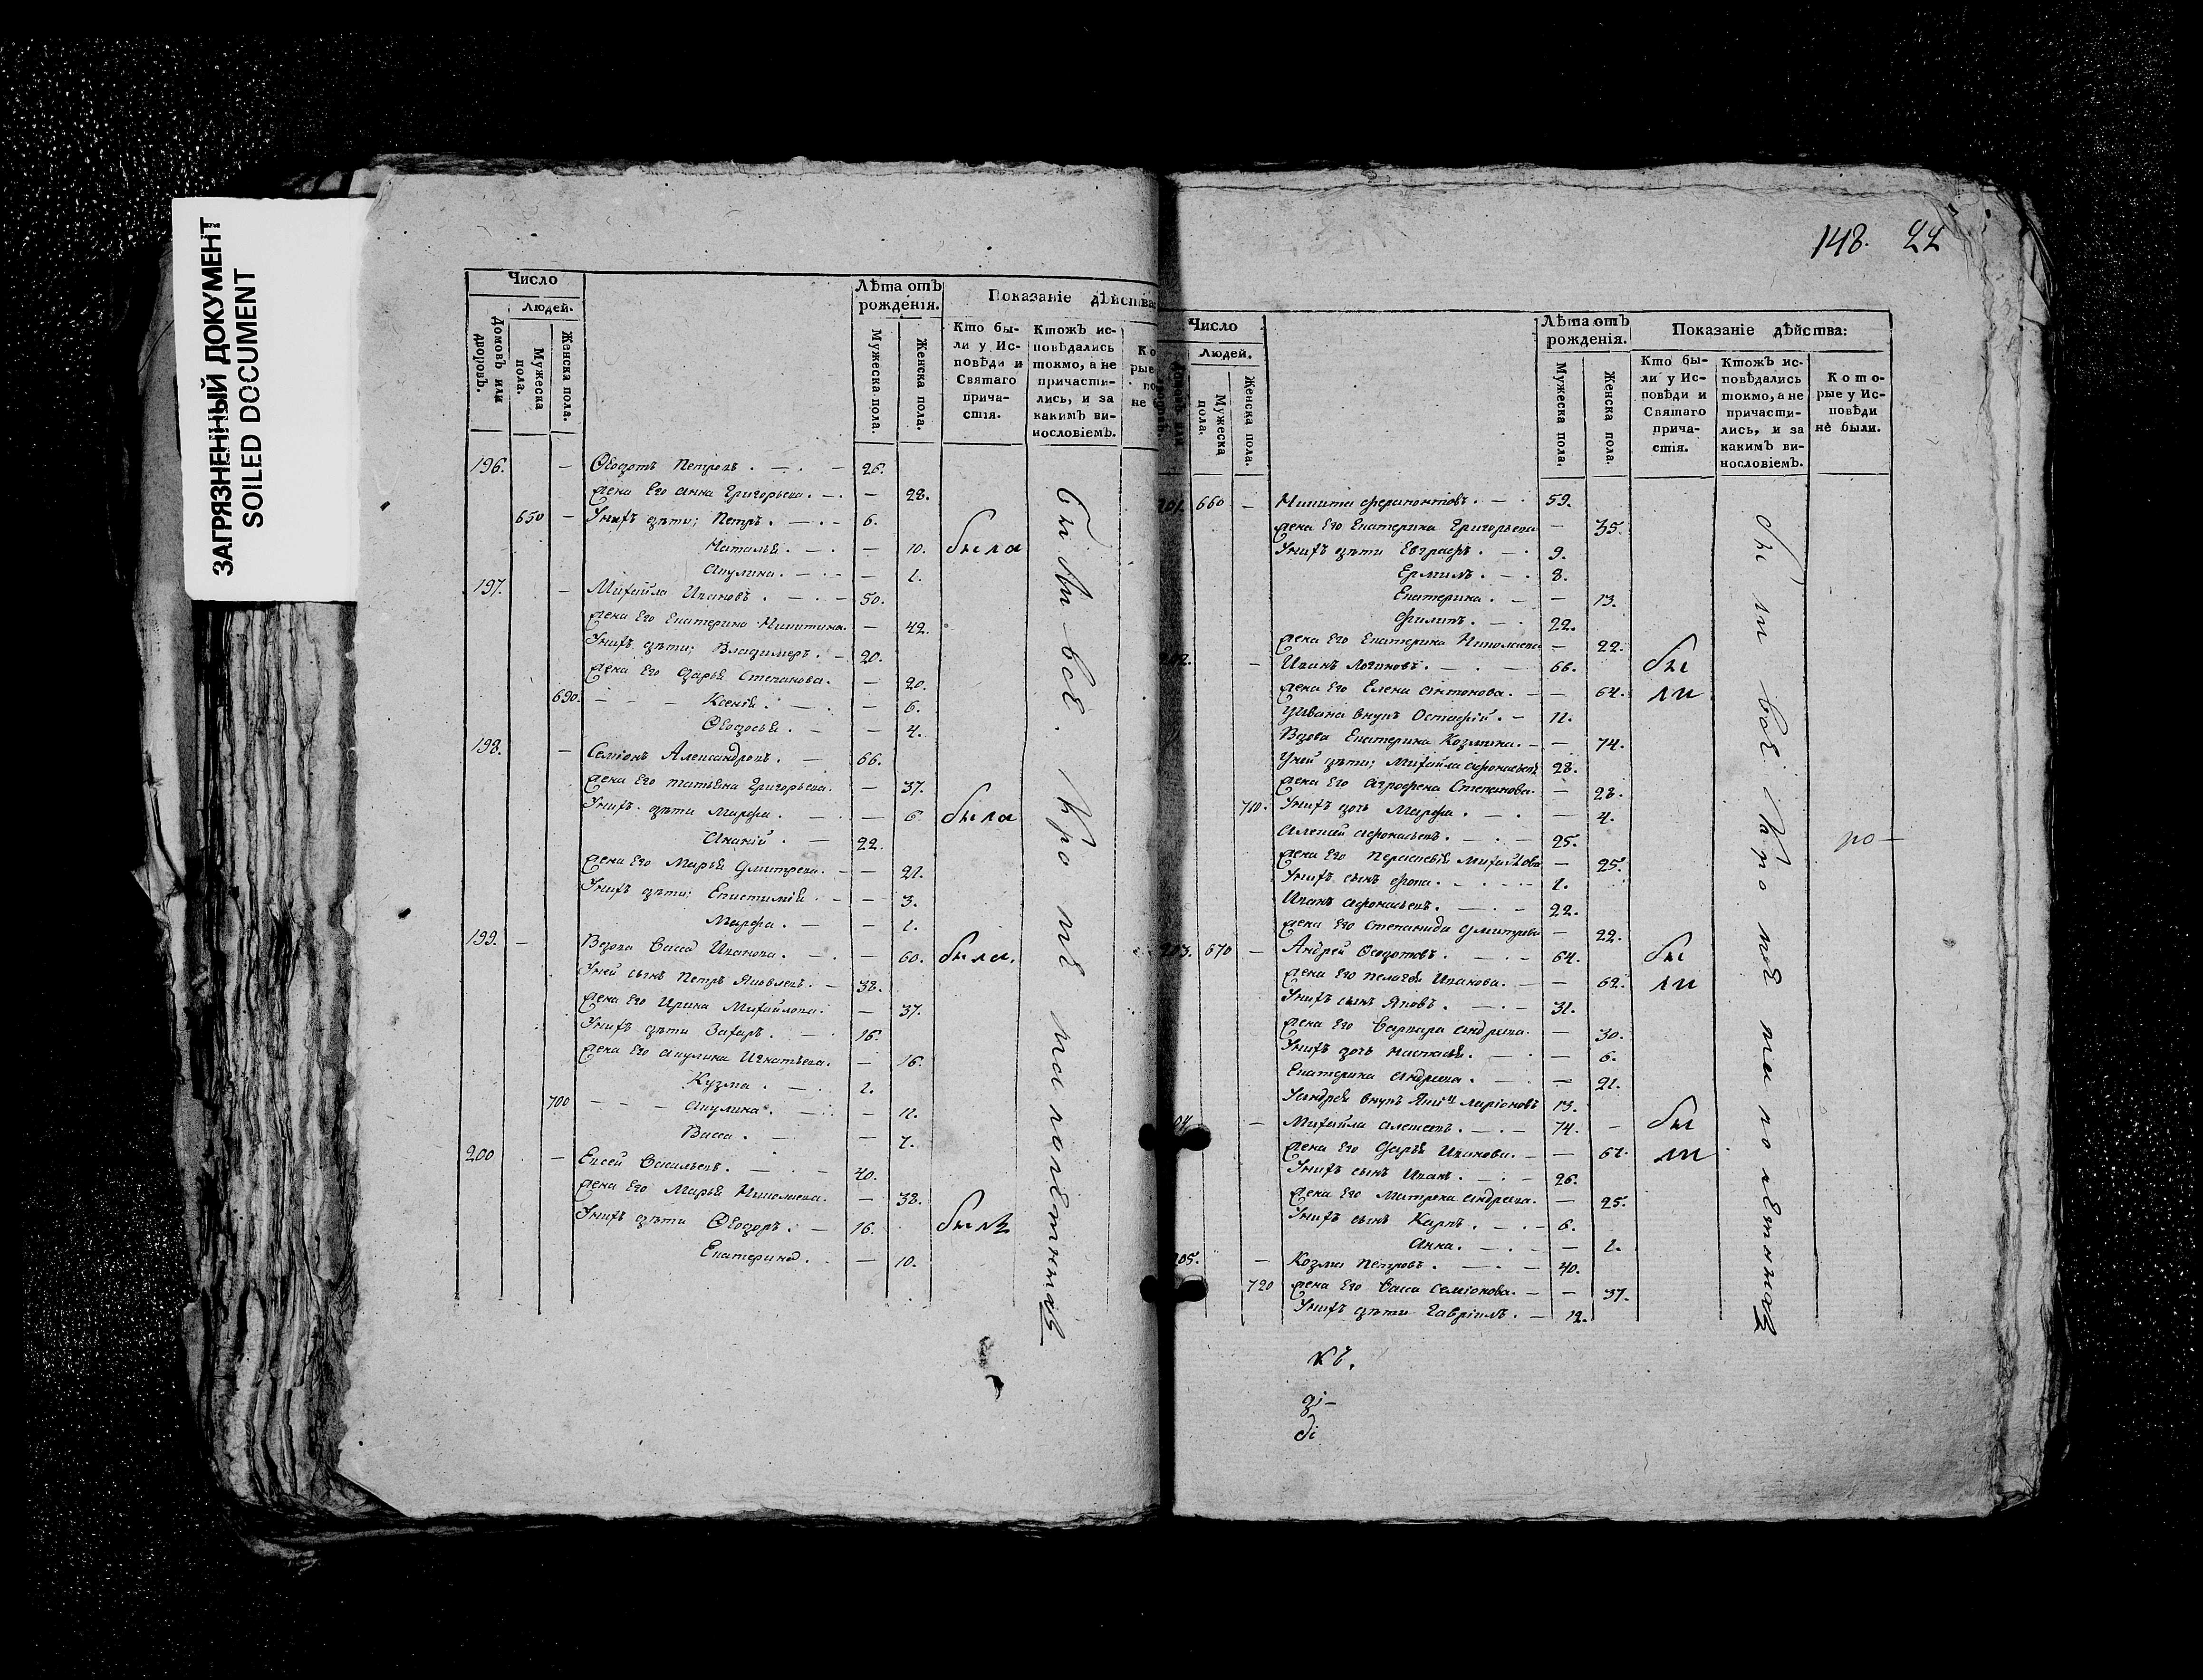 ЗАГРЯЗНЕННЫЙ ДОКУМЕНТ
SOILED DOCUMENT
Число
Людей.
Домовъ или дворовъ.
Мужеска пола.
Женска пола.
Лѣта отъ рожденія.
Мужеска пола.
Женска пола.
Показаніе дѣйства
Кто бы-
ли у Ис-
повѣди и
Святаго
прича-
стія.
Ктожъ ис-
повѣдались
токмо, а не
причасти-
лись, и за
какимъ ви-
нословіемъ.
196. — Ѳедотъ Петровъ. — 26.
жена Его Анна Григорьева. — 28.
650 — Унихъ дѣти; Петръ. — 6.
Наталья. — 10. была
Акулина. — 1.
197. — Михайла Ивановъ. — 50.
жена Его Екатерина Никитина. — 42.
Унихъ дѣти; Владимеръ. — 20.
жена Его Дарья Степанова. — 20.
690. Ксенія. — 6.
Ѳедосья. — 4.
198. — Семіонъ Александровъ. — 66.
жена Его Татьяна Григорьева. — 37.
Унихъ дѣти Марфа. — 6. была
Ананій. — 22.
жена Его Марья Дмитрева. — 21.
Унихъ дѣти; Епистимія — 3.
Марфа. — 1.
199. — Вдова Васса Иванова. — 60. была.
Уней сынъ Петръ Яковлевъ. — 38.
жена Его Ирина Михайлова. — 37.
Унихъ дѣти Захаръ. — 16.
жена Его Акулина Игнатьева. — 16.
Кузма. — 1.
700 Акулина. — 11.
Васса. — 7.
200 — Евсей Васильевъ. — 40.
жена Его Марья Николаева. — 38.
Унихъ дѣти Ѳеодоръ. — 16. былъ
Екатерина. — 10.
были всѣ. Кромѣ малолетныхъ
148. 22
Число
Людей.
Мужеска пола.
Женска пола.
Лѣта отъ рожденія.
Мужеска пола.
Женска пола.
Показаніе дѣйства:
Кто бы-
ли у Ис-
повѣди и
Святаго
прича-
стія.
Ктожъ ис-
повѣдались
токмо, а не
причасти-
лись, и за
какимъ ви-
нословіемъ.
Кото-
рые у Ис-
повѣди
не были.
201. 660 — Никита Ферапонтовъ. — 59.
жена Его Екатерина Григорьева — 35.
Унихъ дѣти Евграфъ. — 9.
Ермилъ. — 8.
Екатерина. — 13.
Филипъ. — 22.
жена Его Екатерина Николаева — 22.
202. — Иванъ Логиновъ. — 66. бы
жена Его Елена Антонова. — 64. ли
Уивана внукъ Остафій. — 11.
Вдова Екатерина Козмина. — 74.
Уней дѣти; Михайла Афонасьевъ 28.
жена Его Агрофена Степанова. — 28.
710. Унихъ дочь Марфа. — 4.
Алексей Афонасьевъ. — 25.
жена Его Парасковія Михайлова — 25.
Унихъ сынъ Фока. — 1.
Иванъ Афонасьевъ. — 22.
жена Его Степанида Дмитрева — 22.
203. 670 — Андрей Ѳедотовъ. — 64. бы
жена Его Пелагея Иванова. — 62. ли
Унихъ сынъ Яковъ. — 31.
жена Его Варвара Андреева. — 30.
Унихъ дочь Настасья. — 6.
Екатерина Андреева. — 21.
Уандрея внукъ Ларіоновъ 13.
204. — Михайла Алексеевъ. — 74. бы
жена Его Дарья Иванова. — 61. ли
Унихъ сынъ Иванъ. — 26.
жена Его Матрена Андреева. — 25.
Унихъ сынъ Карпъ. — 6.
Анна. — 1.
205. — Козма Петровъ. — 40.
720 жена Его Васса Семіонова. — 37.
Унихъ дѣти Гавріилъ. — 12.
были всѣ Кромѣ малолетныхъ
ро—